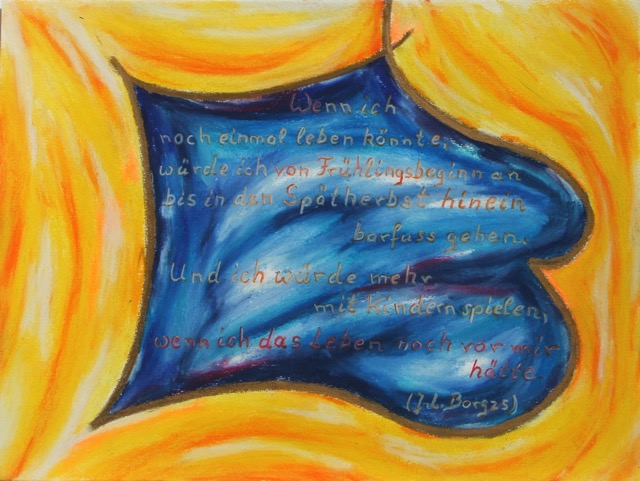 Wenn ich
noch einmal leben könnte,
würde ich von Frühlingsbeginn an
bis in den Spätherbst hinein
barfuss gehen.
Und ich würde mehr
mit Kindern spielen,
wenn ich das Leben noch vor mir
hätte.
(J.L. Borges)